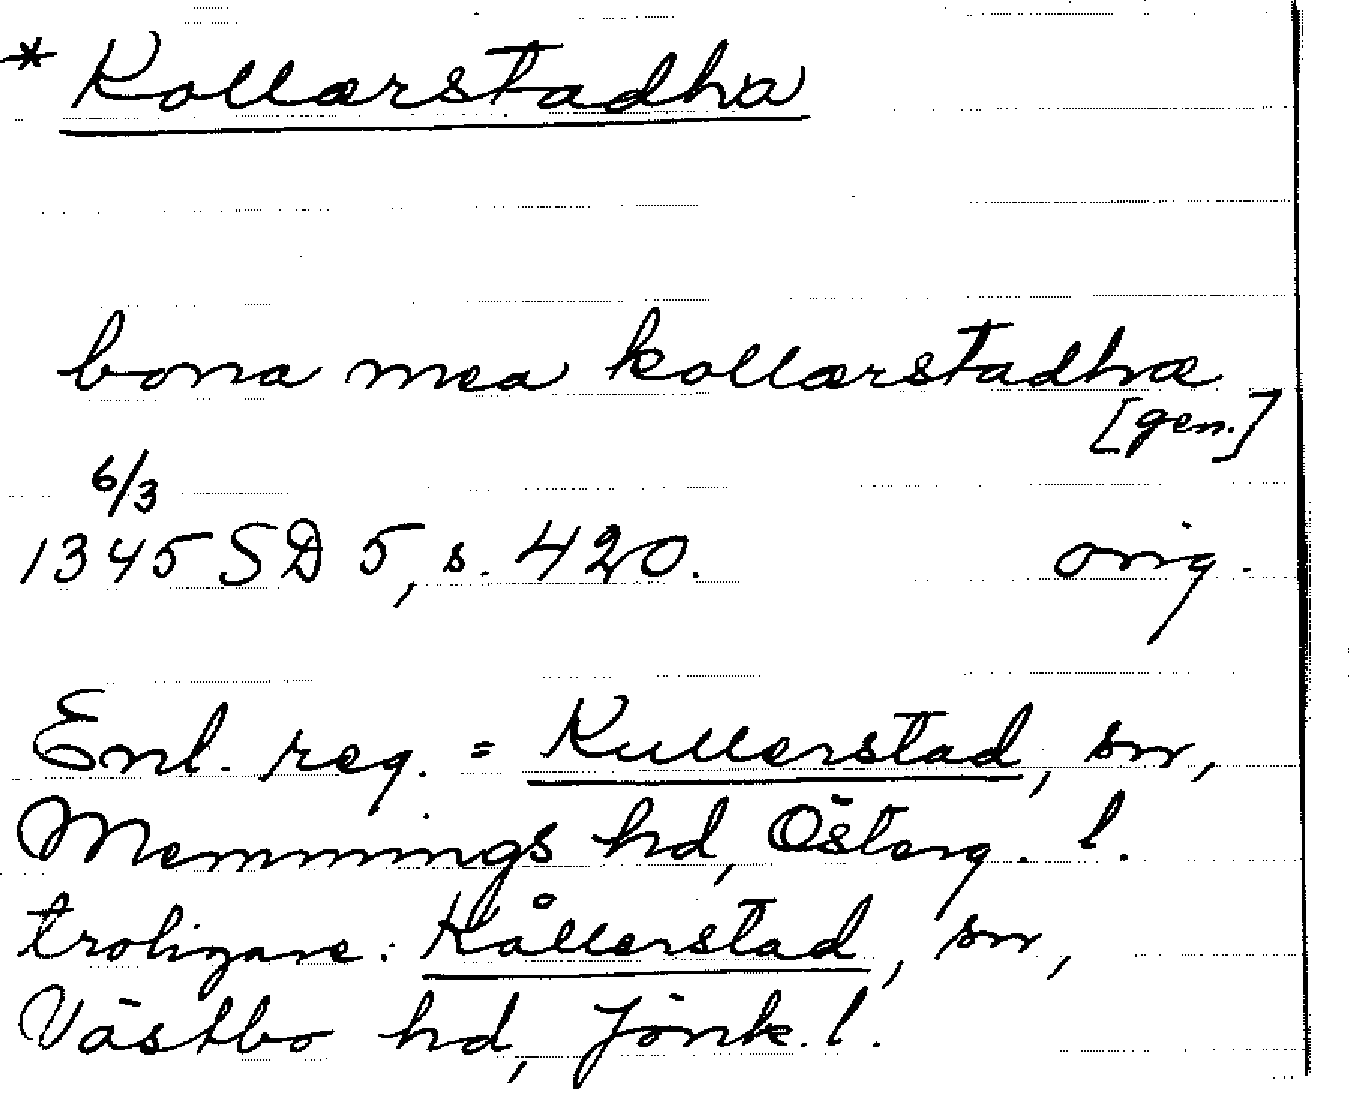 * Kollærstadha
bona mea kollærstadhæ
[gen.]
6/3
1345 SD 5, s. 420. orig.
Enl. reg. = Kullerstad, sn,
Memmings hd, Österg. l.
troligare: Kållerstad, sn,
Västbo hd, Jönk. l.